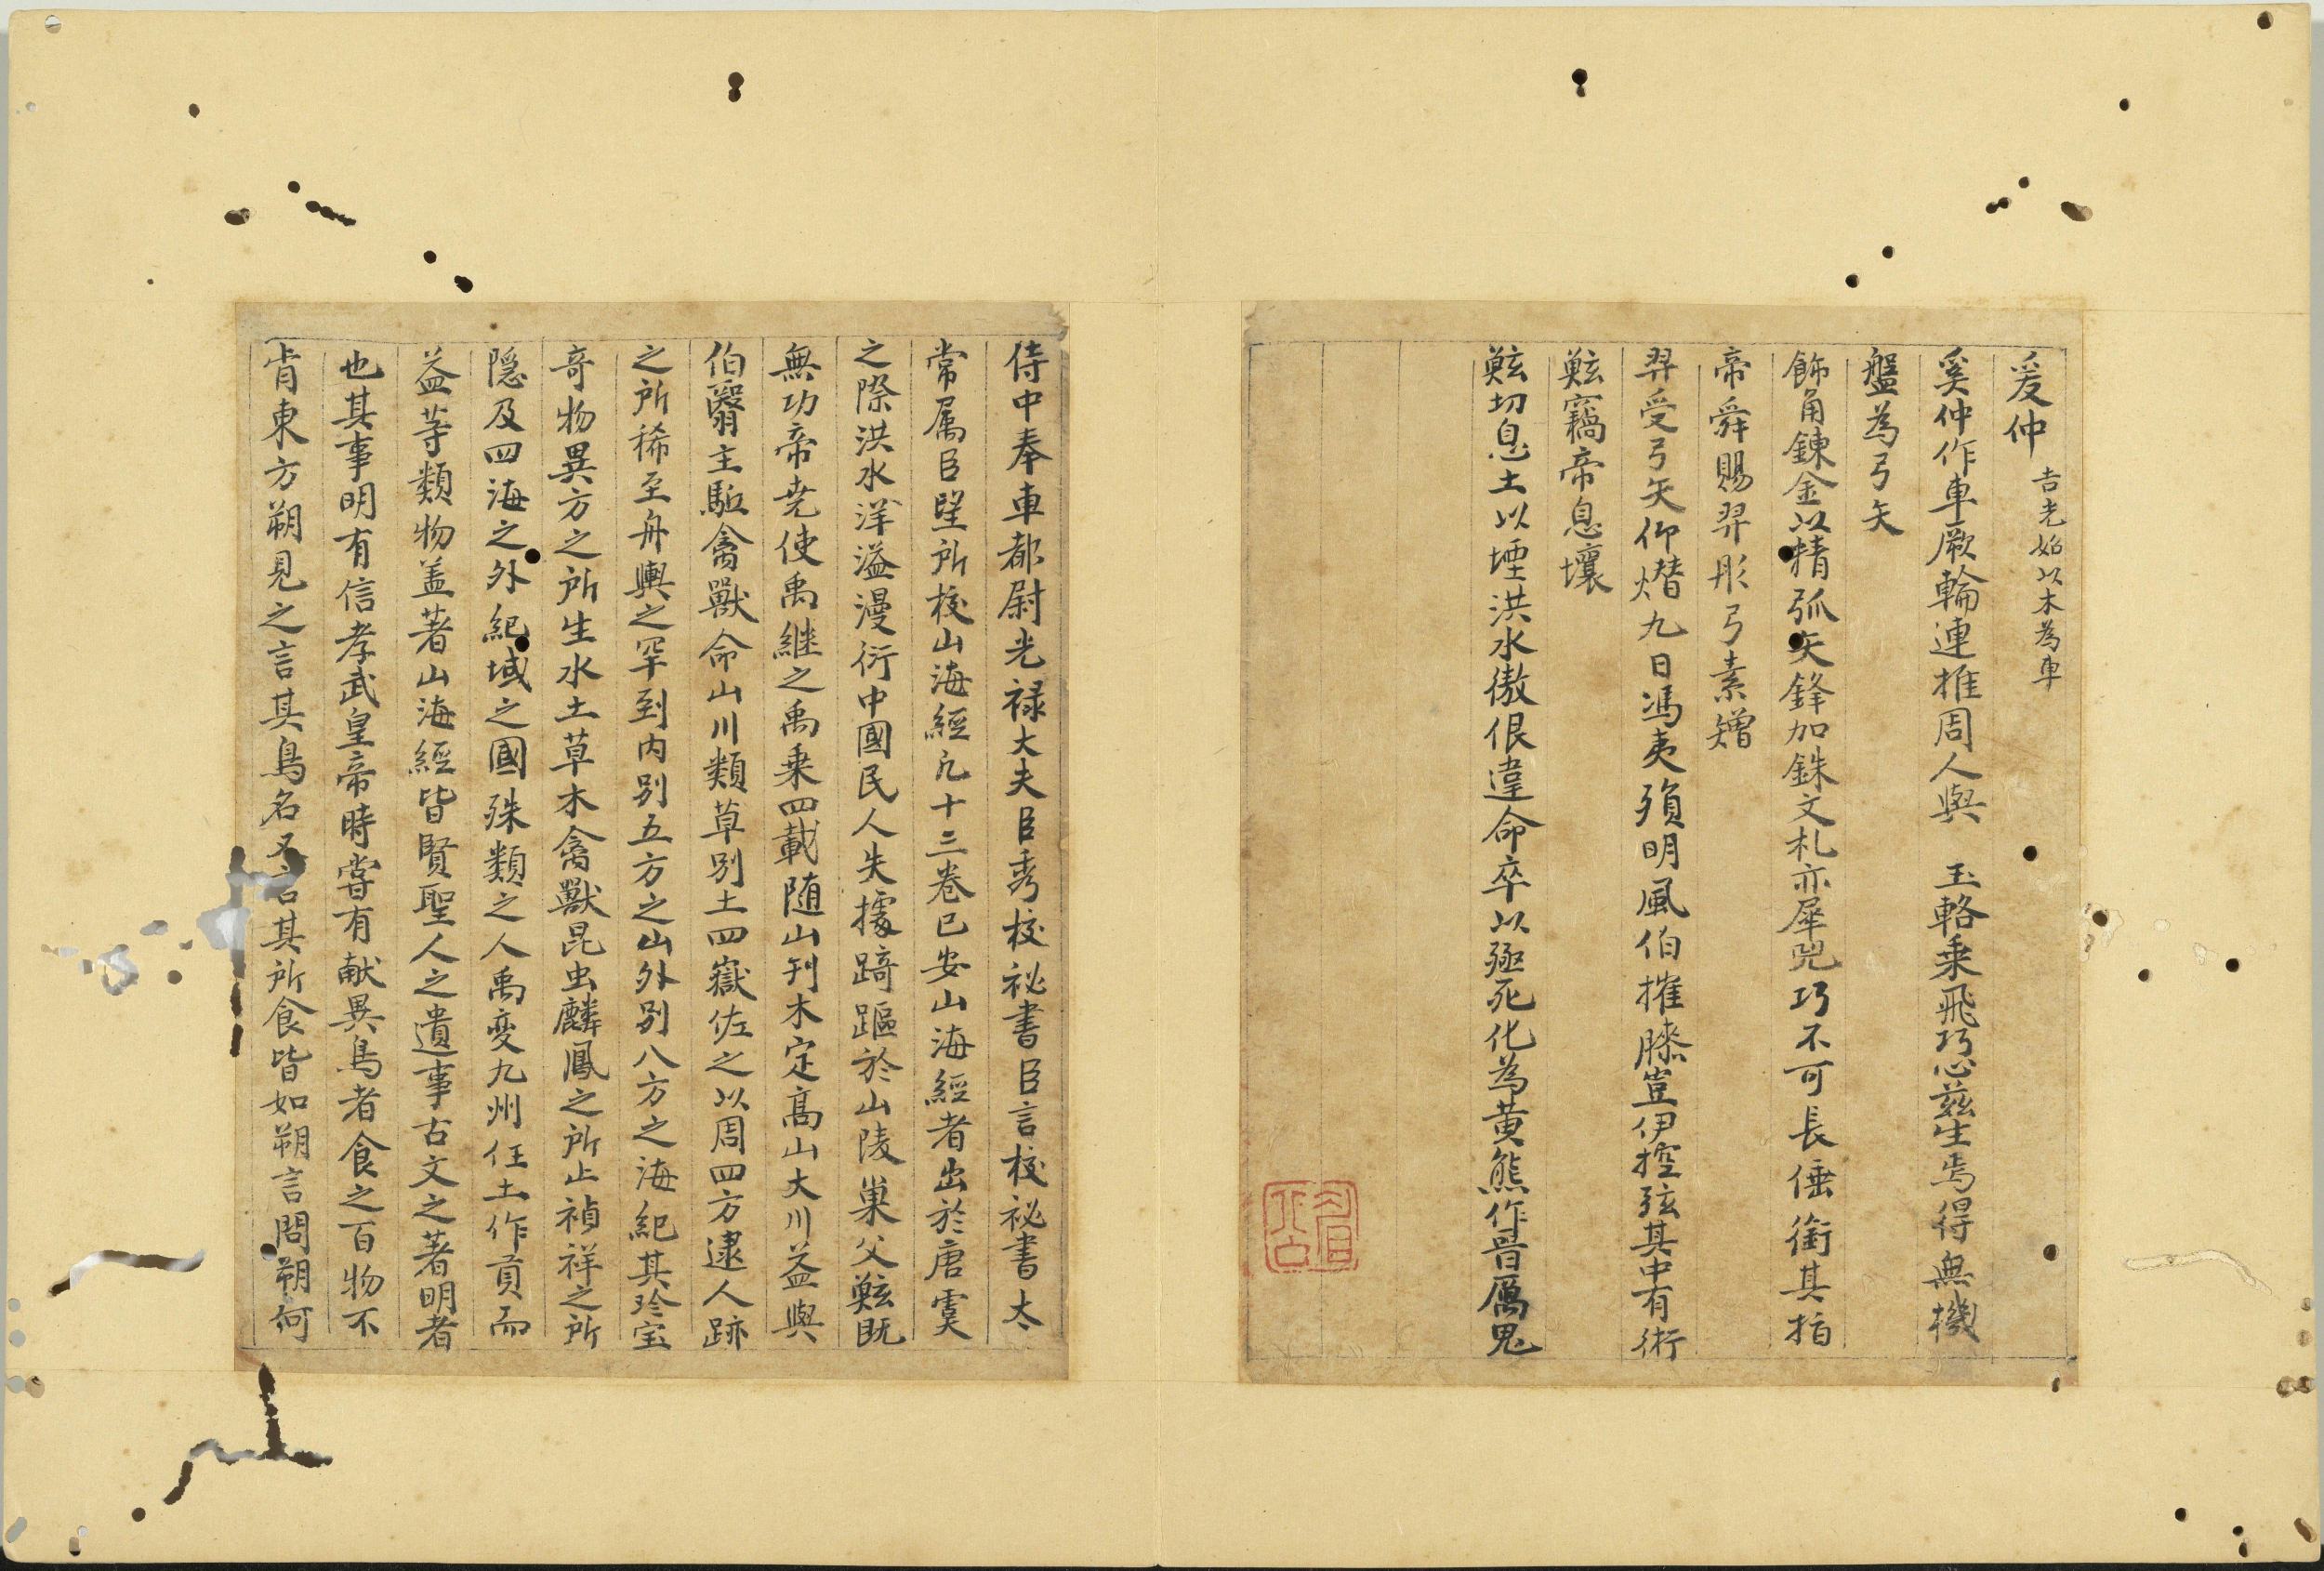 爰仲 吉光始以木為車
奚仲作車厥輪連推周人與 玉輅乗飛巧心茲生焉得無機
盤為弓矢
飾角錬金以精弧矢鋒加銖文札亦犀兕巧不可長倕銜其指
帝舜賜羿彤弓素矰
羿受弓矢仰熸九日馮夷殞明風伯摧膝豈伊控弦其中有術
鮌竊帝息壤
鮌切息土以堙洪水傲佷違命卒以殛死化為黄熊作晉厲鬼
侍中奉車都尉光禄大夫臣秀校祕書臣言校祕書太
常属臣望所校山海經凡十三卷已安山海經者出於唐虞
之際洪水洋溢漫衍中國民人失據踦䠓於山陵巢父鮌既
無功帝尭使禹継之禹乗四載随山刊木定髙山大川益與
伯翳主駈禽獸命山川類草别土四嶽佐之以周四方逮人跡
之所稀至舟輿之罕到内别五方之山外别八方之海紀其珍宝
竒物異方之所生水土草木禽獸昆虫麟鳳之所止禎祥之所
隠及四海之外紀域之國殊類之人禹変九州任土作貢而
益等類物盖著山海經皆賢聖人之遺事古文之著明者
也其事明有信孝武皇帝時嘗有献異鳥者食之百物不
肯東方朔見之言其鳥名又言其所食皆如朔言問朔何